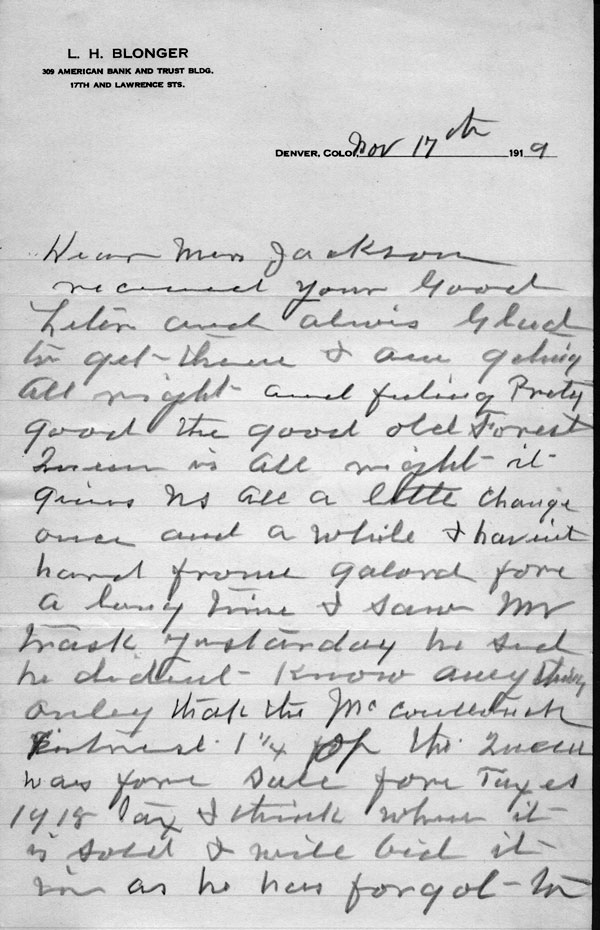 L. H. BLONGER
309 AMERICAN BANK AND TRUST BLDG.
17TH AND LAWRENCE STS.
DENVER, COLO. Nov 17th 1919
Dear Mrs Jackson
received your Good
Leter and alwis Glad
to get them I am geting
all right and feeling Prety
good the good old Forest
Queen is all right it
gives us all a little change
once and a while I havint
hard frome Galord fore
a long time I saw Mr
Trask yestarday he sed
he dident know any thing
onley that the
Intrest 1 1/4 of the Queen
was fore sale fore Taxes
1918 Tax I think when it
is sold I will bid it
in as he has forgot to